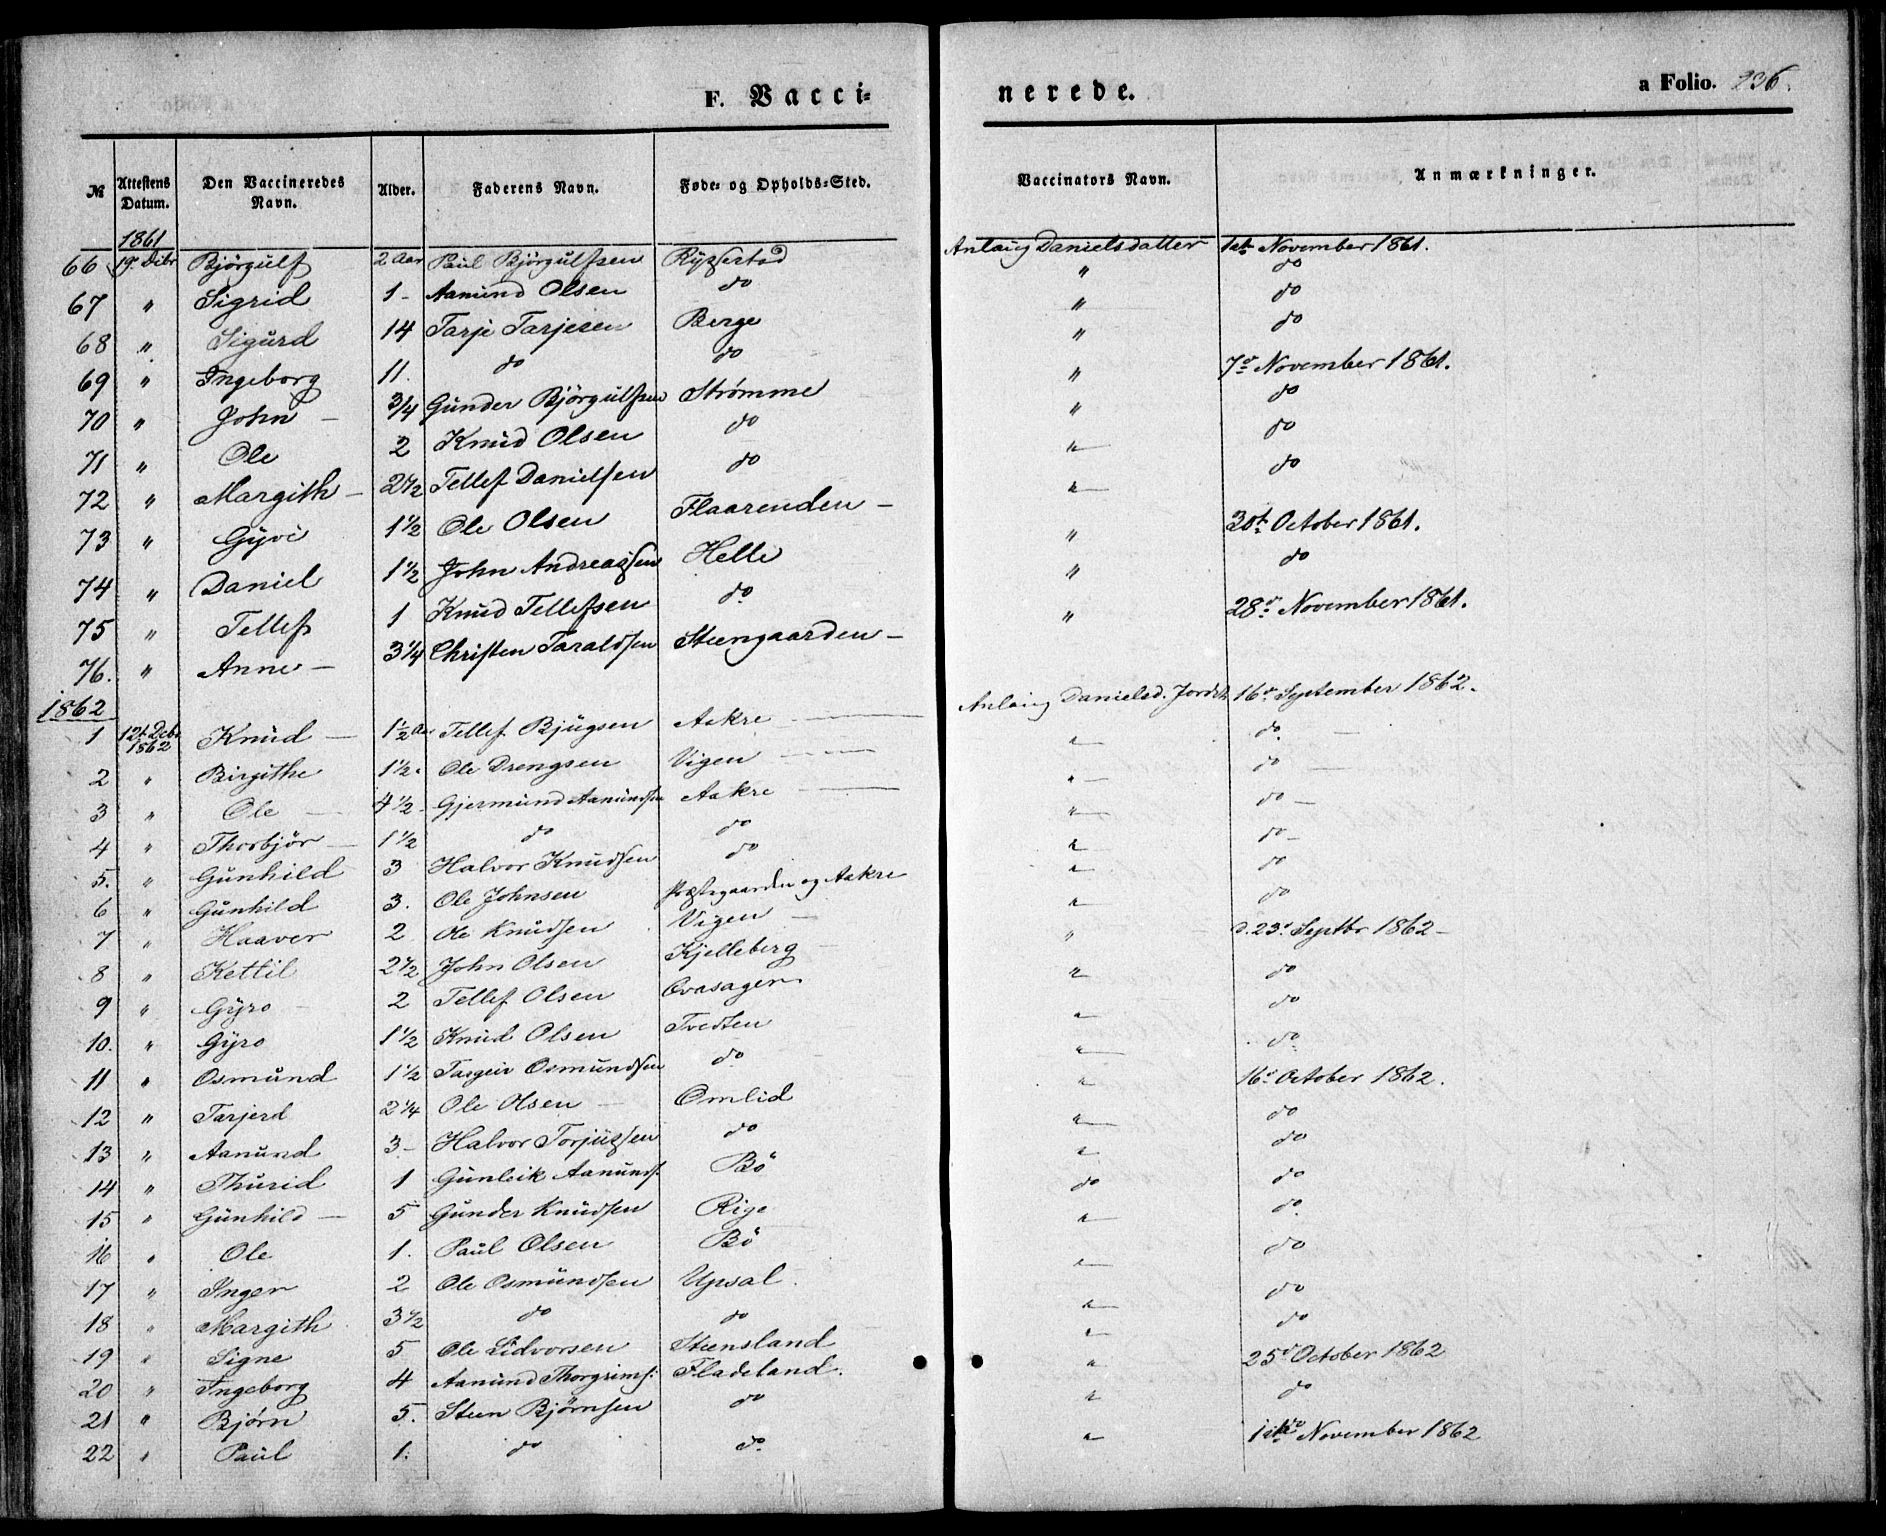 F. Vaccinerede. a Folio. 236.
№ | Attestens Datum. | Den Vaccineredes Navn. | Alder. | Faderens Navn. | Føde- og Opholds-Sted. | Vaccinators Navn. | Anmærkninger.
1861
66 | 19de Decbr | Bjørgulf | 2 Aar | Paul Bjørgulfsen | Rysestad | Anlaug Danielsdatter | 1ste November 1861.
67 | " | Sigrid | 1 - | Aamund Olsen | do | " | do
68 | " | Sigurd | 14 | Tarje Tarjesen | Berge | " | do
69 | " | Ingeborg | 11. | do | do | " | do
70 | " | John - | 3/4 | Gunder Bjørgulfsen | Strømme | " | 7de November 1861.
71 | " | Ole | 2 | Knud Olsen | do | " | do
72 | " | Margith - | 2 1/2 | Tellef Danielsen | do | " | do
73 | " | Gyvi | 1 1/2 | Ole Olsen | Flaarenden - | " | do
74 | " | Daniel | 1 1/2 | John Andreassen | Helle | " | 30te October 1861.
75 | " | Tellef | 1 | Knud Tellefsen | do | " | do
76. | " | Anne - | 3 1/4 | Christen Taraldsen | Steengaarden - | " | 28de November 1861.
1862
1 | 12te Debr 1862 | Knud - | 1 1/2 Aar | Tellef Bjugsen | Aakre | Anlaug Danielsd. | 16de September 1862.
2 | " | Birgithe | 1 1/2 | Ole Drengsen | Vigen | " | do
3 | " | Ole - | 4 1/2 | Gjermund Aamundsen | Aakre | " | do
4 | " | Thorbjør - | 1 1/2 | do | do | " | do
5. | " | Gunhild | 3 | Halvor Knudsen | do | " | do
6 | " | Gunhild | 3. | Ole Johnsen | Præstegaarden og Aakre | " | do
7 | " | Haaver | 2 | Ole Knudsen | Vigen - | " | do
8 | " | Kettil | 2 1/2 | John Olsen | Kjelleberg - | " | d. 23de Septbr 1862 -
9 | " | Gyro - | 2 | Tellef Olsen | Ovasagen | " | do
10. | " | Gyro | 1 1/2 | Knud Olsen | Tvedten | " | do
11 | " | Osmund | 1 1/2 | Targeir Osmundsen | do | " | do
12 | " | Tarjerd | 2 1/4 | Ole Olsen - | Omlid | " | 16de October 1862.
13 | " | Aanund | 3 - | Halvor Torjussen | do | " | do
14 | " | Thurid | 1 | Gunleik Aanunds. | Bö | do | do
15 | " | Gunhild - | 5 | Gunder Knudsen | Rige | " | do
16 | " | Ole | 1. | Paul Olsen | Bö | " | do
17 | " | Inger | 2 | Ole Osmundsen | Upsal. | " | do
18 | " | Margith | 3 1/2 | do | do | " | do
19 | " | Signe | 5 | Ole Lidvorsen | Steensland | " | do
20 | " | Ingeborg | 4 | Aanund Thorgrims: | Fladeland. | " | 25de October 1862
21 | " | Bjørn | 5. | Steen Bjørnsen | do | " | do
22 | " | Paul | 1. | do | do | " | 1ste November 1862